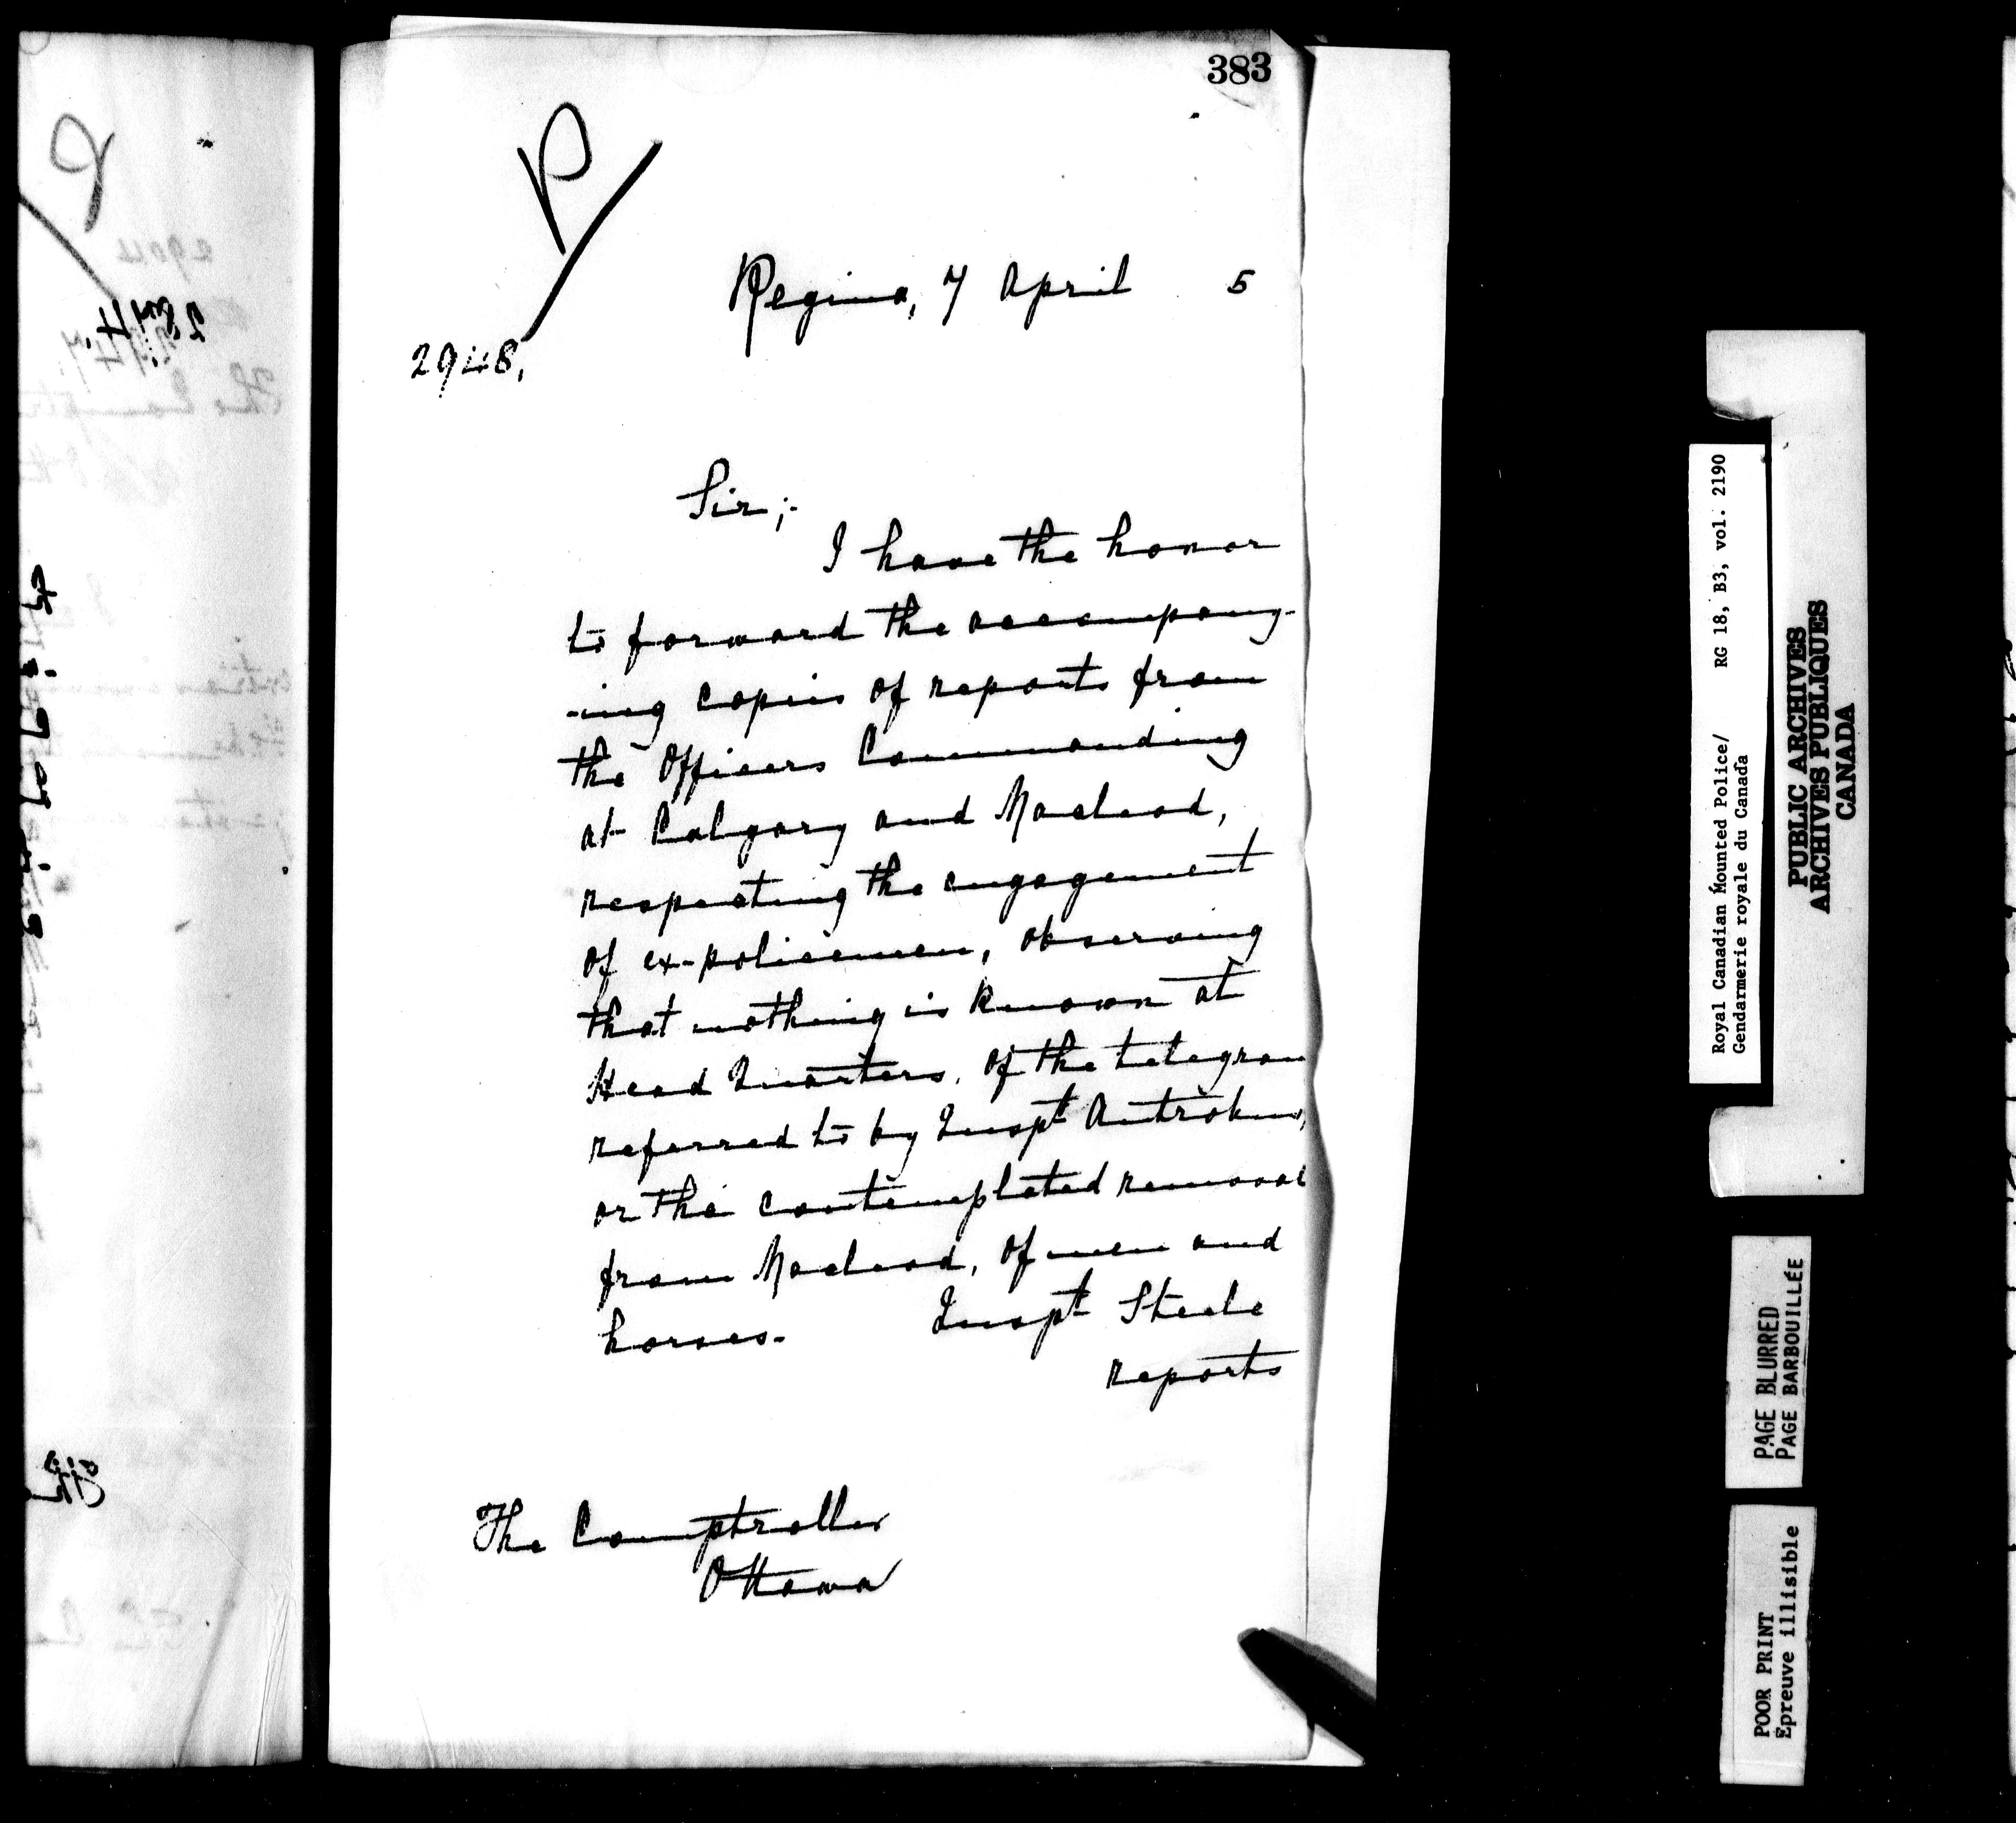 383
P
Regina, 7 April 5
2948.
Sir;-
I have the honor
to forward the accompany-
-ing copies of reports from
the Officers Commanding
at Calgary and Macleod,
respecting the engagement
of ex-policemen, observing
that nothing is known at
Head Quarters, of the telegram
referred to by Inspt Antrobus,
or the contemplated removal
from Macleod, of men and
horses. Inspt Steele
reports
The Comptroller
Ottawa
Royal Canadian Mounted Police/ RG 18, B3, vol. 2190
Gendarmerie royale du Canada
PUBLIC ARCHIVES
ARCHIVES PUBLIQUES
CANADA
PAGE BLURRED
PAGE BARBOUILLÉE
POOR PRINT
Epreuve illisible